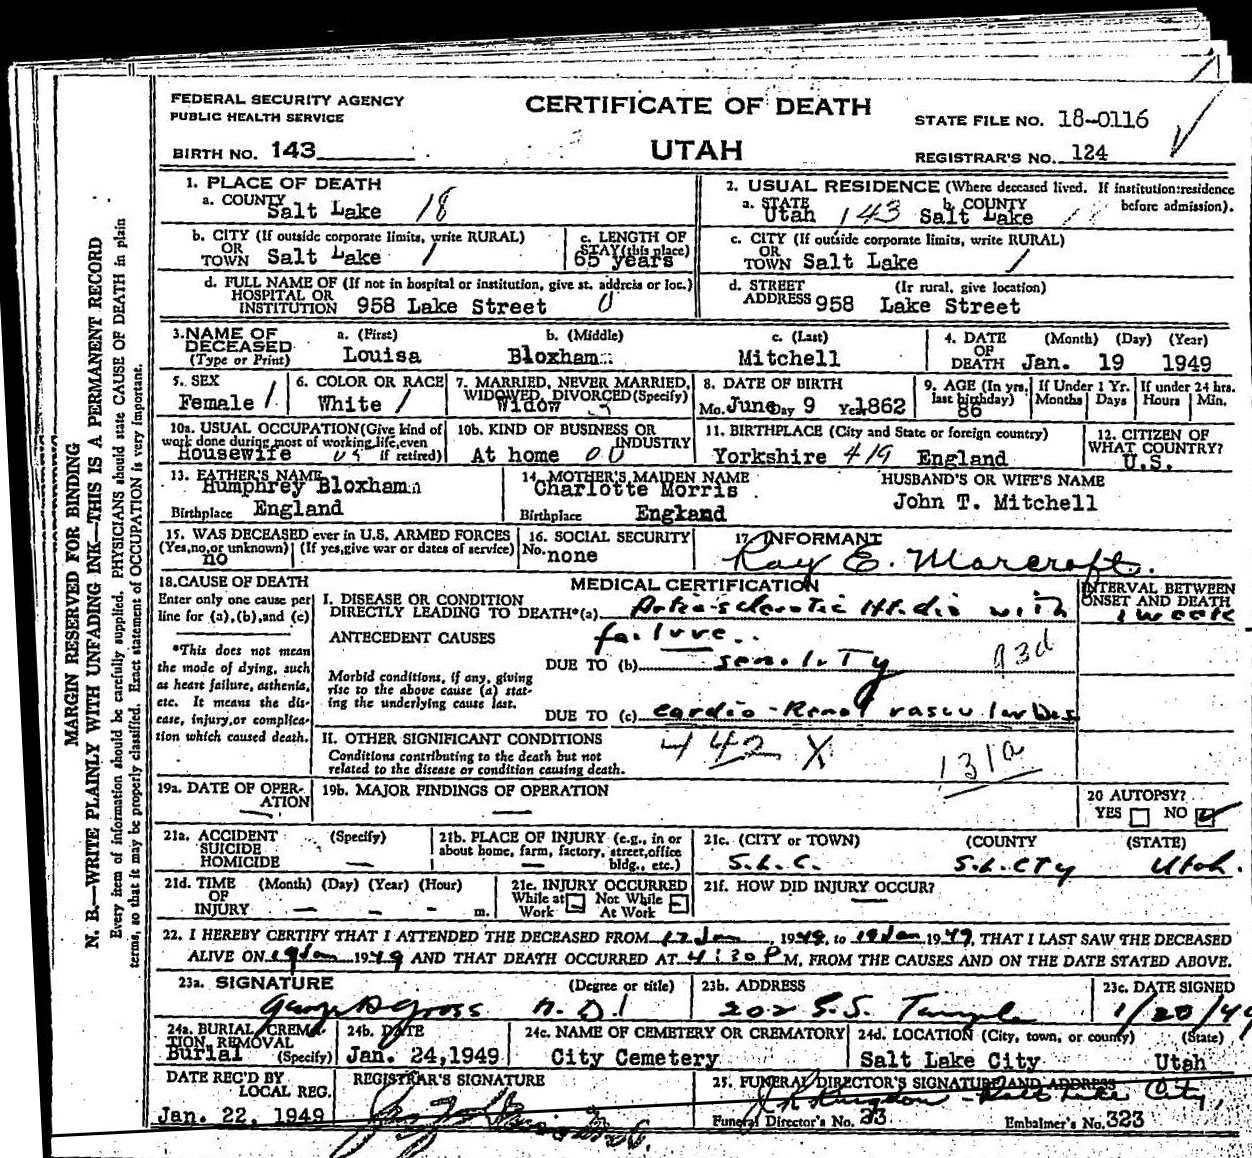 FEDERAL SECURITY AGENCY
PUBLIC HEALTH SERVICE
CERTIFICATE OF DEATH
STATE FILE NO. 18-0116
BIRTH NO. 143
UTAH
REGISTRAR'S NO. 124
MARGIN RESERVED FOR BINDING
N. B.—WRITE PLAINLY WITH UNFADING INK—THIS IS A PERMANENT RECORD
Every item of information should be carefully supplied. PHYSICIANS should state CAUSE OF DEATH in plain
terms, so that it may be properly classified. Exact statement of OCCUPATION is very important.
1. PLACE OF DEATH
a. COUNTY
Salt Lake 18
2. USUAL RESIDENCE (Where deceased lived. If institution:residence
before admission).
a. STATE
Utah 143
b. COUNTY
Salt Lake
b. CITY (If outside corporate limits, write RURAL)
OR
TOWN Salt Lake /
c. LENGTH OF
STAY (this place)
65 years
c. CITY (If outside corporate limits, write RURAL)
OR
TOWN Salt Lake /
d. FULL NAME OF (If not in hospital or institution, give st. address or loc.)
HOSPITAL OR
INSTITUTION 958 Lake Street 0
d. STREET (Ir rural, give location)
ADDRESS 958 Lake Street
3. NAME OF
DECEASED
(Type or Print)
a. (First)
Louisa
b. (Middle)
Bloxham
c. (Last)
Mitchell
4. DATE (Month) (Day) (Year)
OF
DEATH Jan. 19 1949
5. SEX
Female /
6. COLOR OR RACE
White /
7. MARRIED, NEVER MARRIED,
WIDOWED, DIVORCED (Specify)
Widow 3
8. DATE OF BIRTH
Mo. June Day 9 Year 1862
9. AGE (In yrs.
last birthday)
86
If Under 1 Yr.
Months Days
If under 24 hrs.
Hours Min.
10a. USUAL OCCUPATION (Give kind of
work done during most of working life, even
if retired)
Housewife
10b. KIND OF BUSINESS OR
INDUSTRY
At home 00
11. BIRTHPLACE (City and State or foreign country)
Yorkshire 419 England
12. CITIZEN OF
WHAT COUNTRY?
U.S.
13. FATHER'S NAME
Humphrey Bloxham
Birthplace England
14. MOTHER'S MAIDEN NAME
Charlotte Morris
Birthplace England
HUSBAND'S OR WIFE'S NAME
John T. Mitchell
15. WAS DECEASED ever in U.S. ARMED FORCES
(Yes, no, or unknown) (If yes, give war or dates of service)
no
16. SOCIAL SECURITY
No. none
17. INFORMANT
Ray E. Marcroft.
18. CAUSE OF DEATH
Enter only one cause per
line for (a), (b), and (c)
*This does not mean
the mode of dying, such
as heart failure, asthenia,
etc. It means the dis-
ease, injury, or complica-
tion which caused death.
MEDICAL CERTIFICATION
INTERVAL BETWEEN
ONSET AND DEATH
1 week
I. DISEASE OR CONDITION
DIRECTLY LEADING TO DEATH*(a) Arterio-sclerotic Ht. dis with
failure
ANTECEDENT CAUSES
DUE TO (b) senility 93d
Morbid conditions, if any, giving
rise to the above cause (a) stat-
ing the underlying cause last.
DUE TO (c) cardio-Renal vascular Des
II. OTHER SIGNIFICANT CONDITIONS
Conditions contributing to the death but not
related to the disease or condition causing death.
442 X 131a
19a. DATE OF OPER-
ATION
19b. MAJOR FINDINGS OF OPERATION
20 AUTOPSY?
YES NO
21a. ACCIDENT (Specify)
SUICIDE
HOMICIDE
21b. PLACE OF INJURY (e.g., in or
about home, farm, factory, street, office
bldg., etc.)
21c. (CITY or TOWN) (COUNTY) (STATE)
S.L.C. S.L.CTy Utah.
21d. TIME (Month) (Day) (Year) (Hour)
OF
INJURY m.
21e. INJURY OCCURRED
While at Work Not While At Work
21f. HOW DID INJURY OCCUR?
22. I HEREBY CERTIFY THAT I ATTENDED THE DECEASED FROM 17 Jan, 1949, to 19 Jan 1949, THAT I LAST SAW THE DECEASED
ALIVE ON 19 Jan 1949 AND THAT DEATH OCCURRED AT 4:30 P M, FROM THE CAUSES AND ON THE DATE STATED ABOVE.
23a. SIGNATURE (Degree or title)
Gross M.D.
23b. ADDRESS
202 E.S. Temple
23c. DATE SIGNED
1/20/49
24a. BURIAL, CREMA-
TION, REMOVAL
(Specify)
Burial
24b. DATE
Jan. 24,1949
24c. NAME OF CEMETERY OR CREMATORY
City Cemetery
24d. LOCATION (City, town, or county) (State)
Salt Lake City Utah
DATE REC'D BY
LOCAL REG.
Jan. 22, 1949
REGISTRAR'S SIGNATURE
25. FUNERAL DIRECTOR'S SIGNATURE AND ADDRESS
Salt Lake City,
Funeral Director's No. 33
Embalmer's No. 323